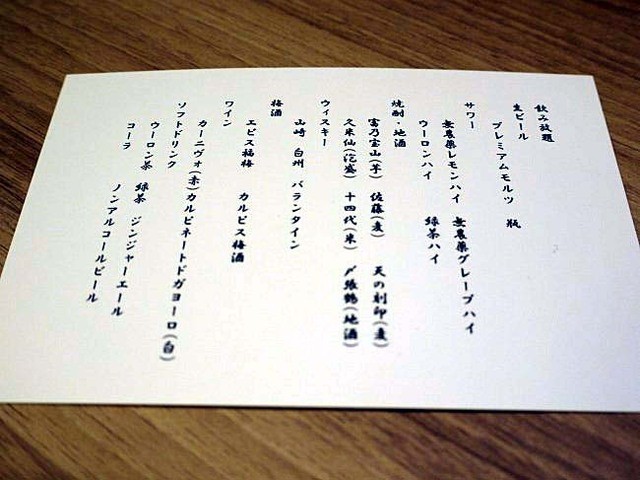 飲み放題
生ビール
プレミアムモルツ 瓶
サワー
無農薬レモンハイ 無農薬グレープハイ
ウーロンハイ 緑茶ハイ
焼酎・地酒
富乃宝山(芋) 佐藤(麦) 天の刻印(麦)
久米仙(泡盛) 十四代(米) 〆張鶴(地酒)
ウィスキー
山崎 白州 バランタイン
梅酒
エビス福梅 カルピス梅酒
ワイン
カーニヴォ(赤)カルピネートドガヨーロ(白)
ソフトドリンク
ウーロン茶 緑茶 ジンジャーエール
コーラ ノンアルコールビール